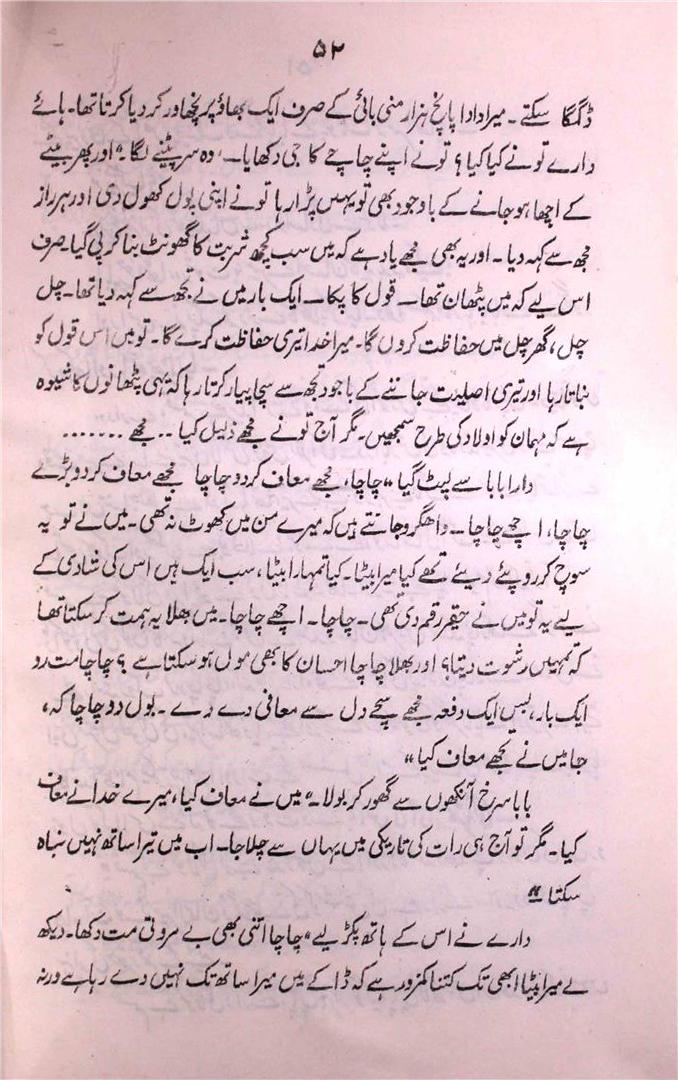 ۵۲
ڈگمگا سکتے ۔ میرا دادا پانچ ہزار منی بائی کے صرف ایک بھاؤ پر نچھاور کر دیا کرتا تھا ۔ ہائے
دارے تو نے کیا کیا ؟ تو نے اپنے چاچے کا جی دکھایا ۔۔ ' وہ سر پیٹنے لگا ۔ " اور پھر بیٹے
کے اچھا ہو جانے کے باوجود بھی تو یہیں پڑا رہا تو نے اپنی پول کھول دی اور ہر راز
مجھ سے کہہ دیا ۔ اور یہ بھی مجھے یاد ہے کہ میں سب کچھ شربت کا گھونٹ بنا کر پی گیا ۔ صرف
اس لیے کہ میں پٹھان تھا ۔ قول کا پکا ۔ ایک بار میں نے تجھ سے کہہ دیا تھا ۔ چل
چل ، گھر چل میں حفاظت کروں گا ۔ میرا خدا تیری حفاظت کرے گا ۔ تو میں اس قول کو
نباتا رہا اور تیری اصلیت جاننے کے باجود تجھ سے سچا پیار کرتا رہا کہ یہی پٹھانوں کا شیوہ
ہے کہ مہمان کو اولاد کی طرح سمجھیں ۔ مگر آج تو نے مجھے ذلیل کیا . . مجھے . . . . . . .
دارا بابا سے لپٹ گیا " چاچا ، مجھے معاف کر دو چاچا مجھے معاف کر دو بڑے
چاچا ، اچھے چاچا ۔ واہگرو جانتے ہیں کہ میرے من میں کھوٹ نہ تھی ۔ میں نے تو یہ
سوچ کر روپئے دیئے تھے کیا میرا بیٹا ۔ کیا تمہارا بیٹا ، سب ایک ہیں اس کی شادی کے
لیے یہ تو میں نے حقیر رقم دی تھی ۔ چاچا ۔ اچھے چاچا ۔ میں بھلا یہ ہمت کر سکتا تھا
کہ تمہیں رشوت دیتا ؟ اور بھلا چاچا احسان کا بھی مول ہو سکتا ہے ؟ چاچا مت رو
ایک بار ، بس ایک دفعہ مجھے سچے دل سے معافی دے دے ۔ بول دو چاچا کہ ،
جا میں نے تجھے معاف کیا "
بابا سرخ آنکھوں سے گھور کر بولا ۔ " میں نے معاف کیا ، میرے خدا نے معاف
کیا ۔ مگر تو آج ہی رات کی تاریکی میں یہاں سے چلا جا ۔ اب میں تیرا ساتھ نہیں نباہ
سکتا "
دارے نے اس کے ہاتھ پکڑ لیے " چاچا اتنی بھی بے مروتی مت دکھا ۔ دیکھ
لے میرا بیٹا ابھی تک کتنا کمزور ہے کہ ڈاکے میں میرا ساتھ تک نہیں دے رہا ہے ورنہ